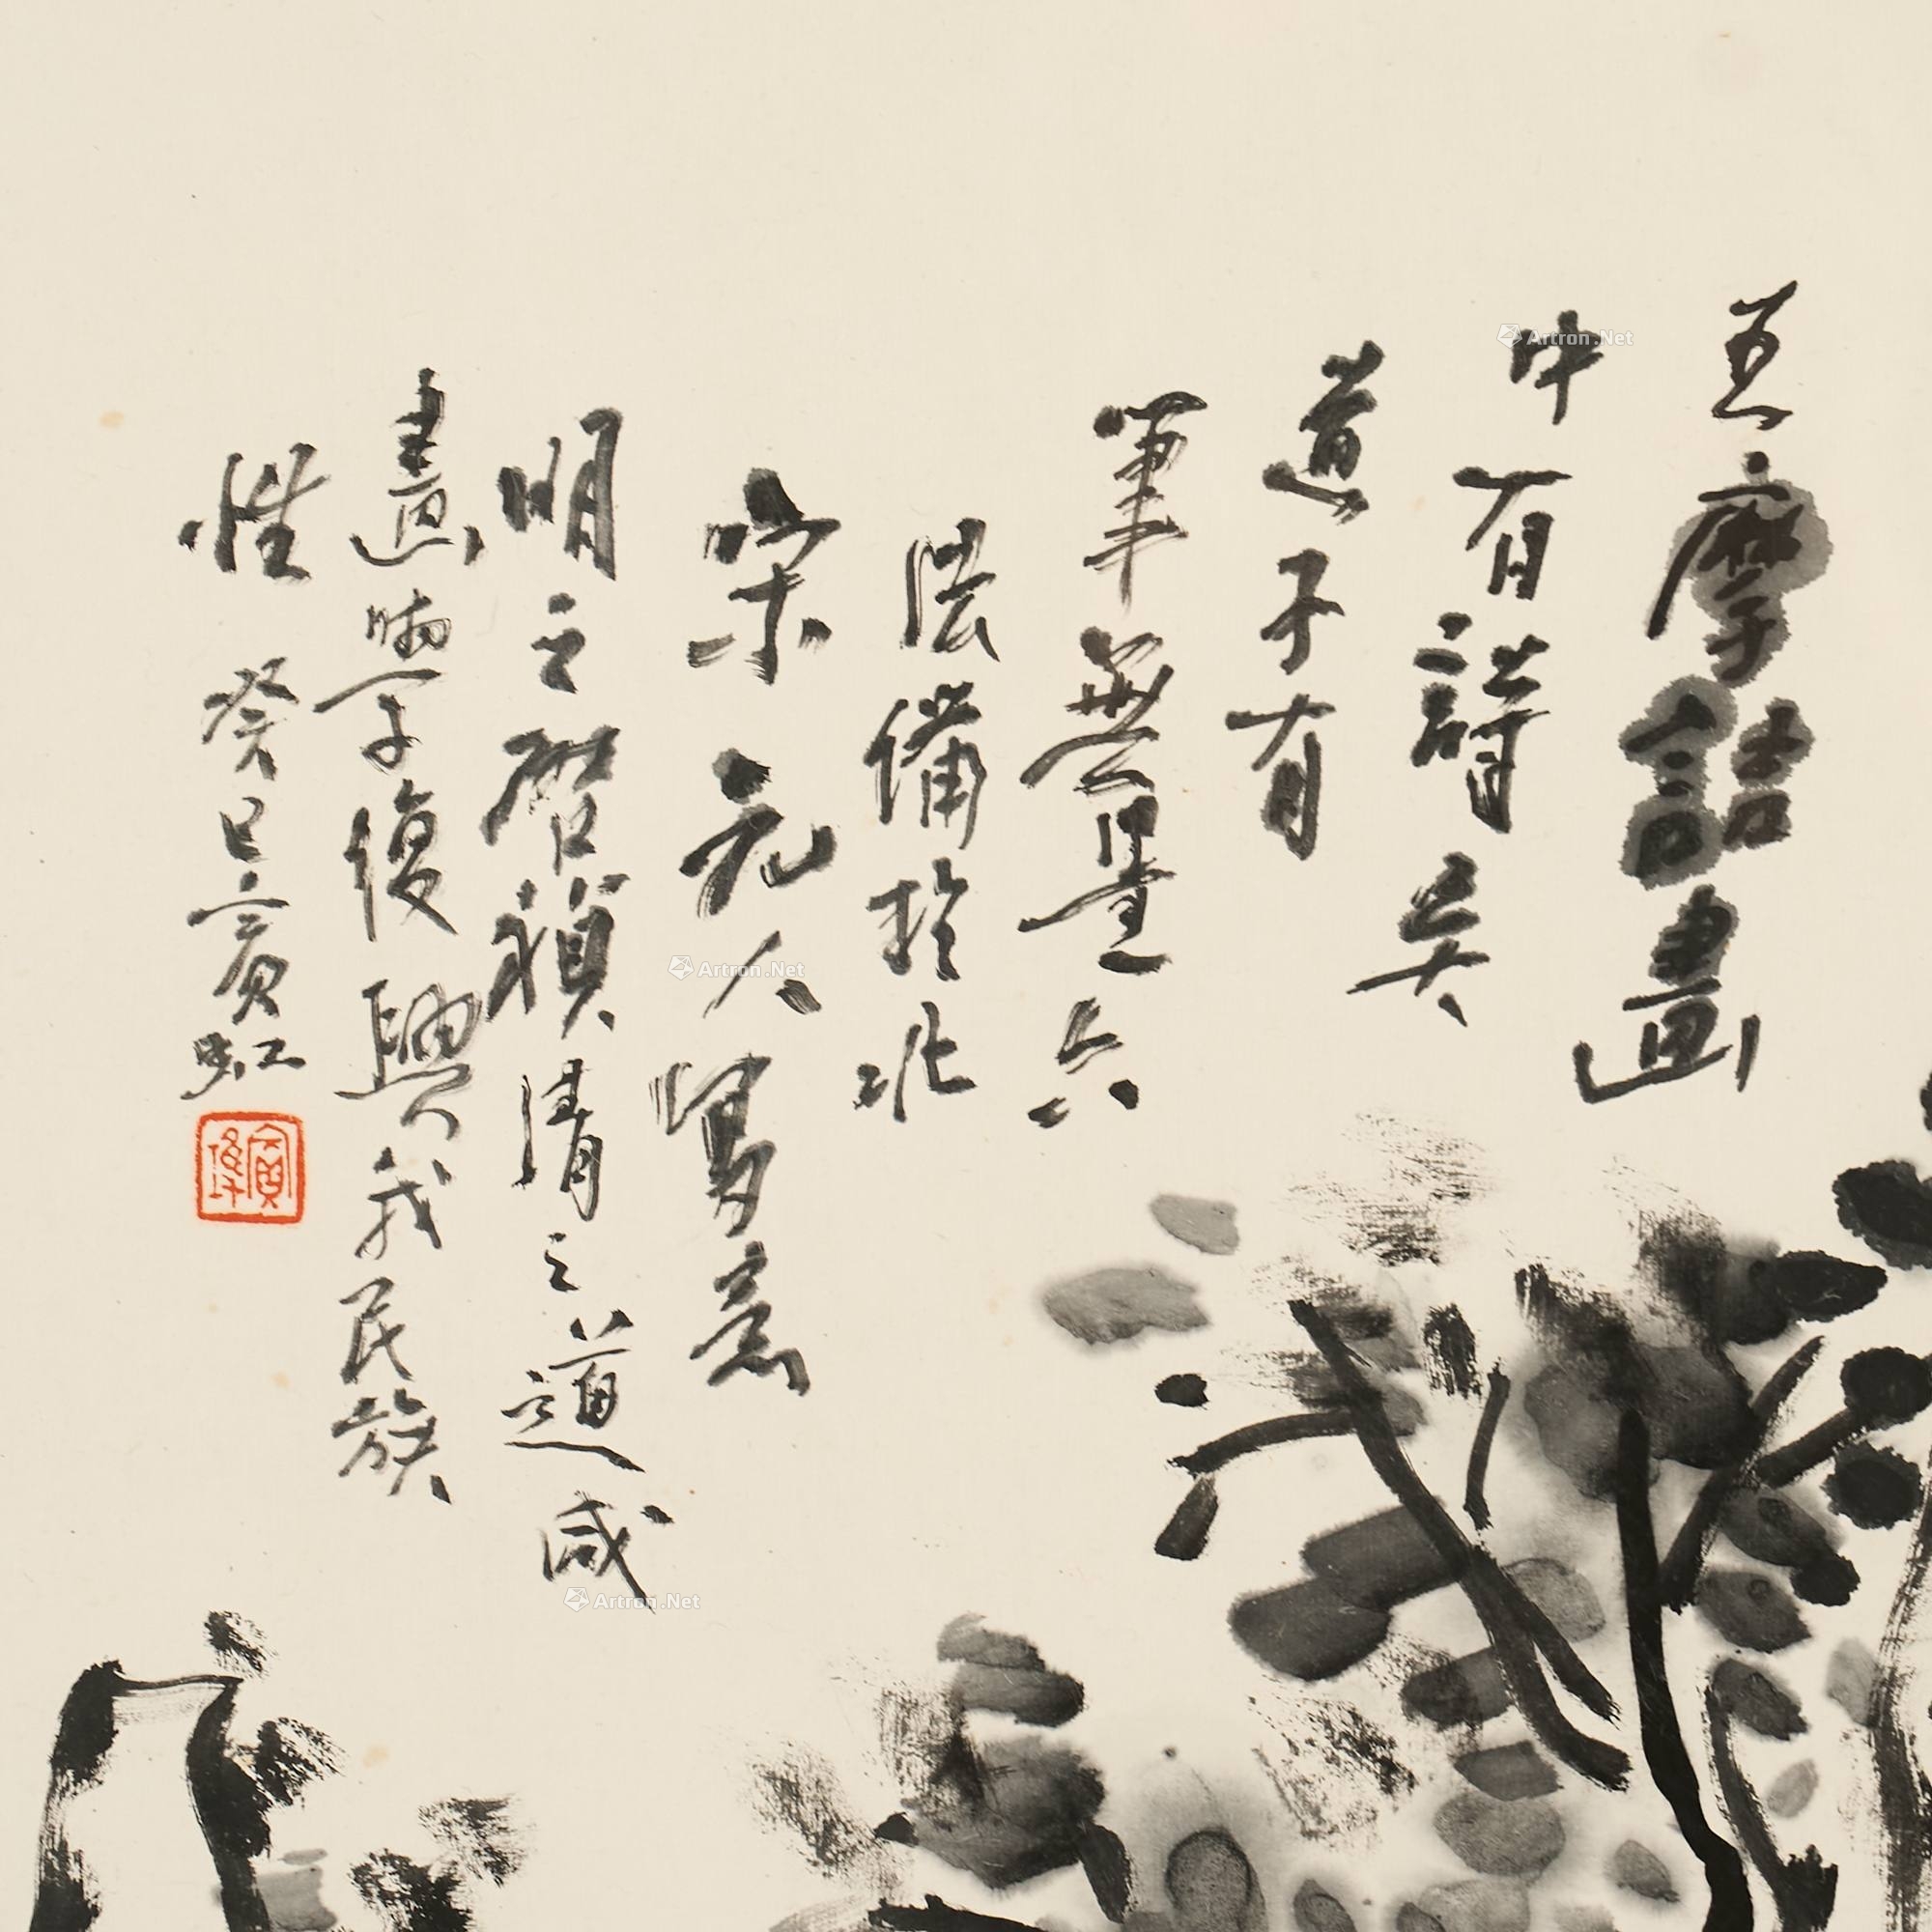 王摩詰畫
中有詩吳
道子有
筆無墨六
法備於北
宋元人寫意
明之啓禎清之道咸
畫學復興我民族
性 癸巳賓虹
賓虹
Artron.Net
Artron.Net
Artron.Net